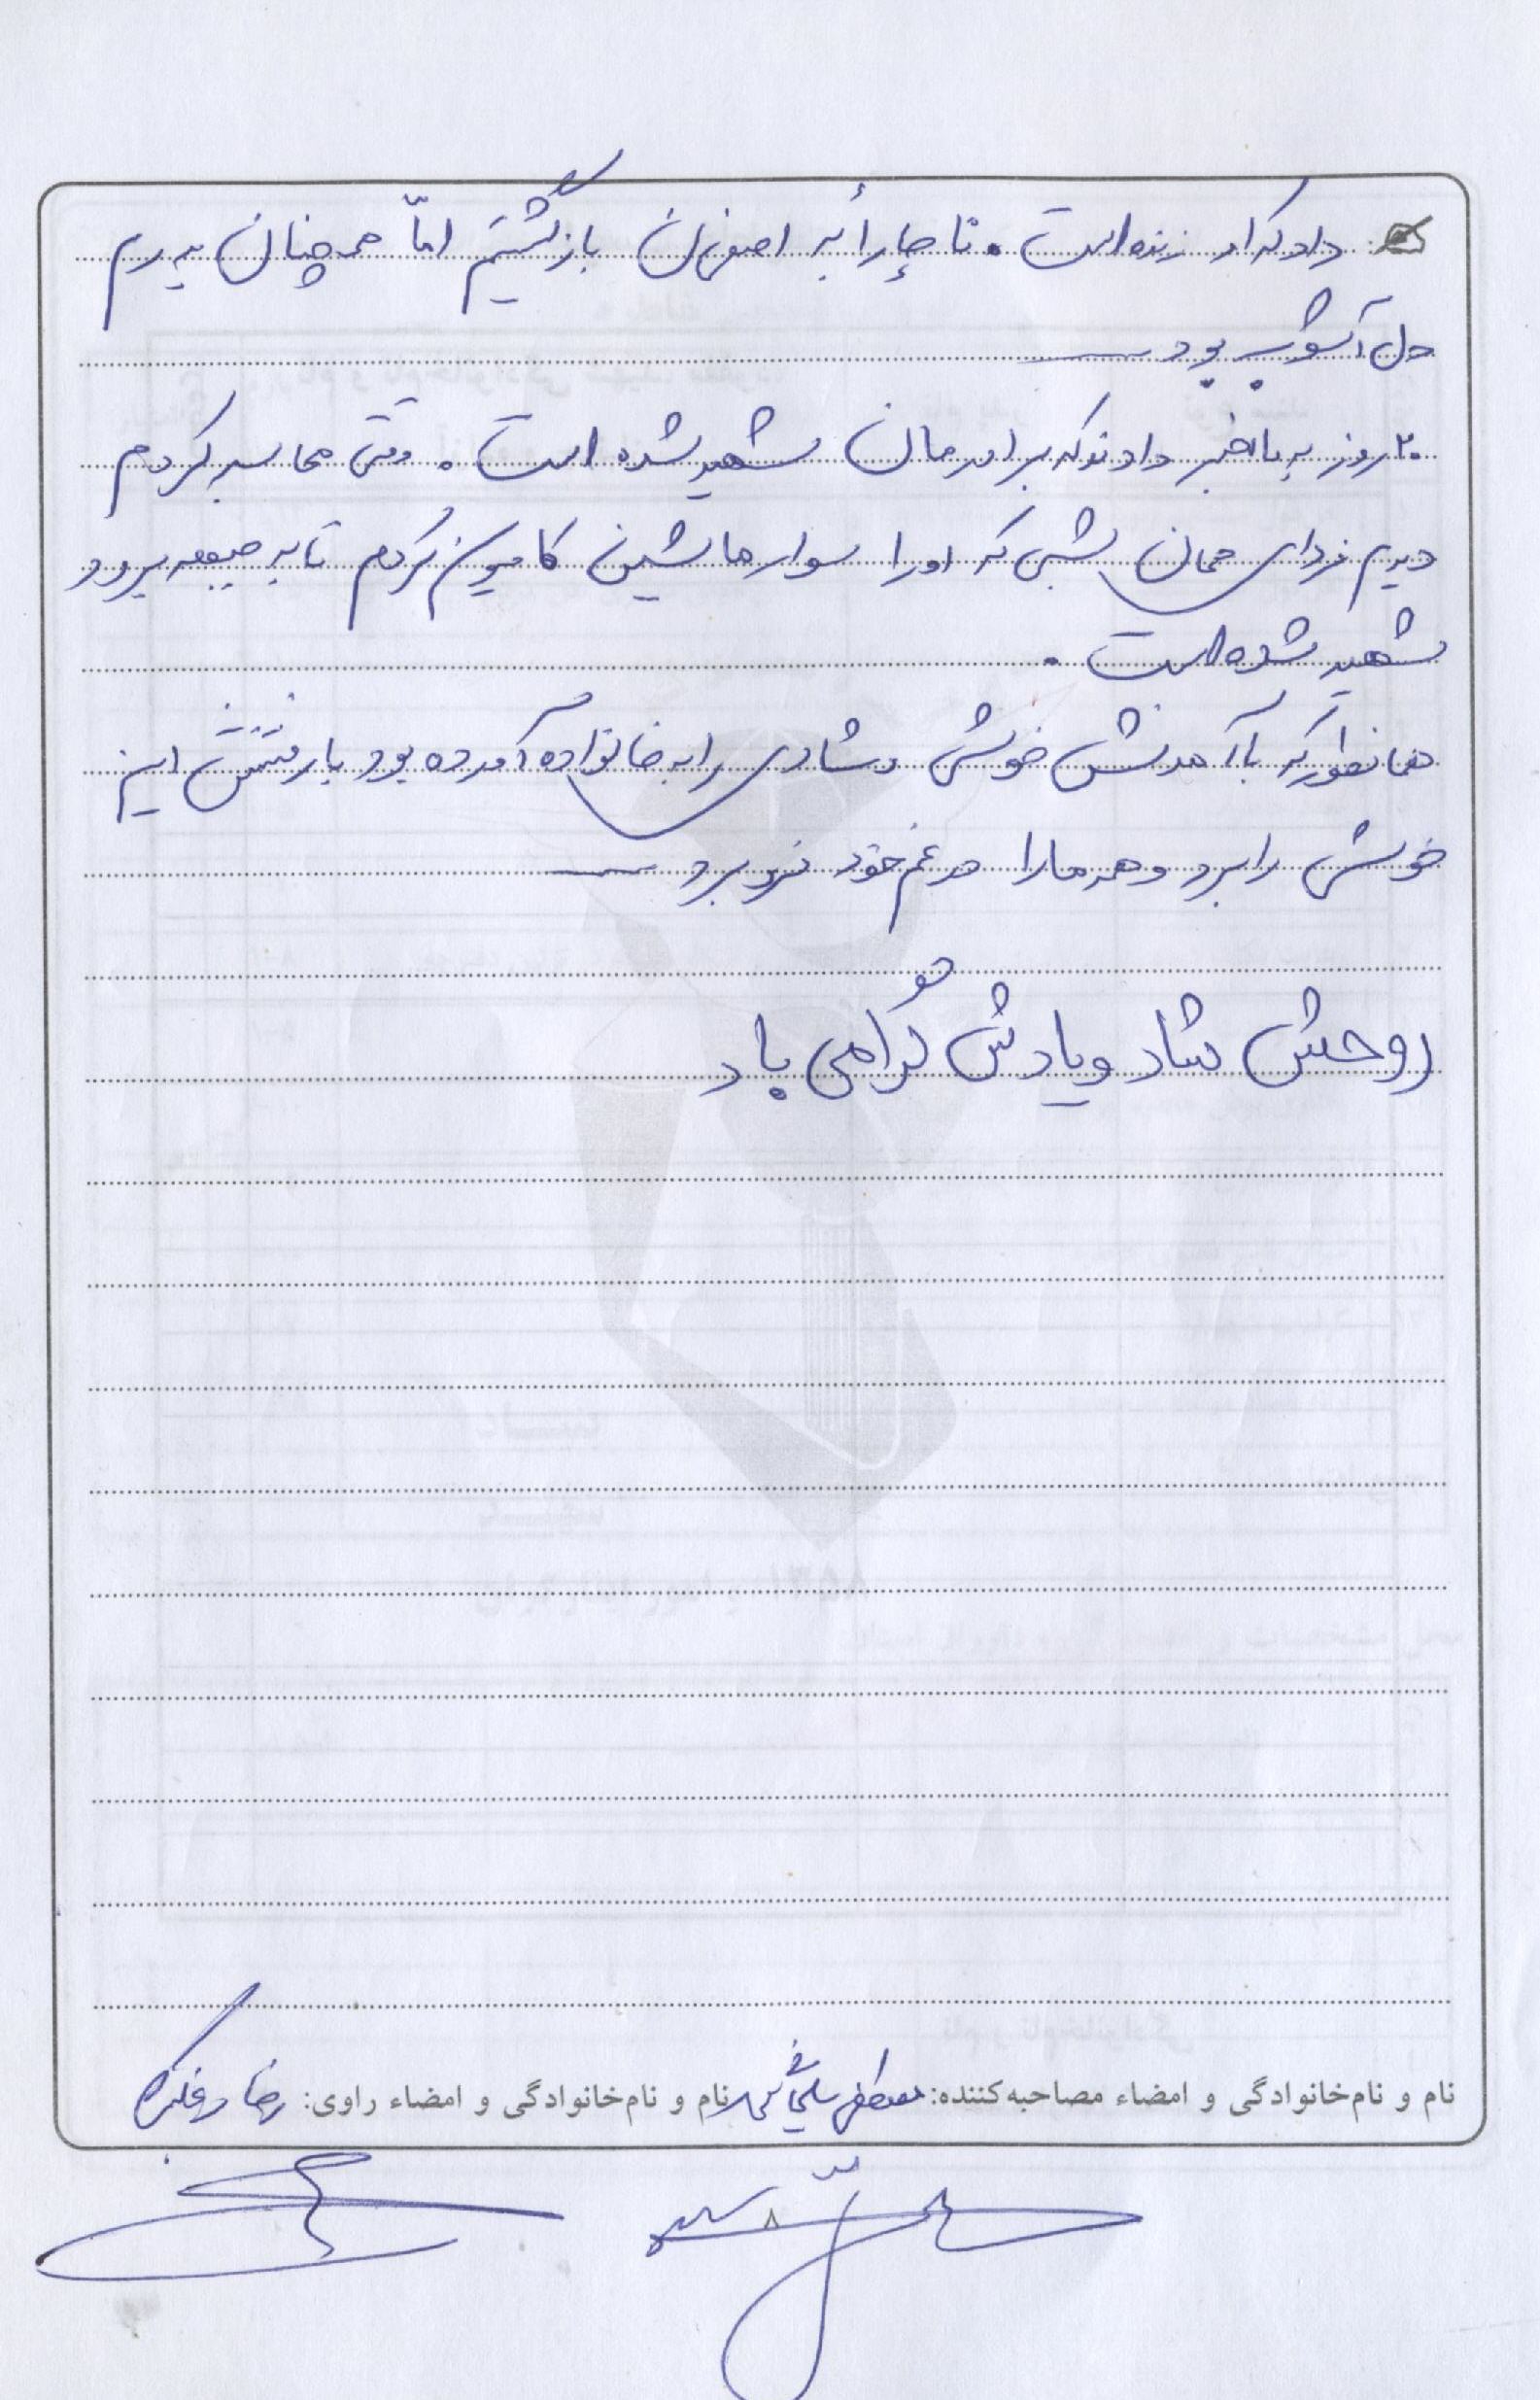 داد که او زنده است. ناچاراً به اصفهان بازگشتیم امّا همچنان پدرم
دل آشوب بود
۲۰ روز به ما خبر دادند که برادرمان شهید شده است. وقتی محاسبه کردم
دیدم فردای همان شبی که او را سوار ماشین کامیون کردم تا به جبهه برود
شهید شده است.
همانطور که با آمدنش خوشی و شادی را به خانواده آورده بود با رفتنش این
خوشی را برد و همه ما را در غم خود فرو برد
روحش شاد و یادش گرامی باد
نام و نام‌خانوادگی و امضاء مصاحبه‌کننده: مصطفی نام و نام‌خانوادگی و امضاء راوی: رضا
۸